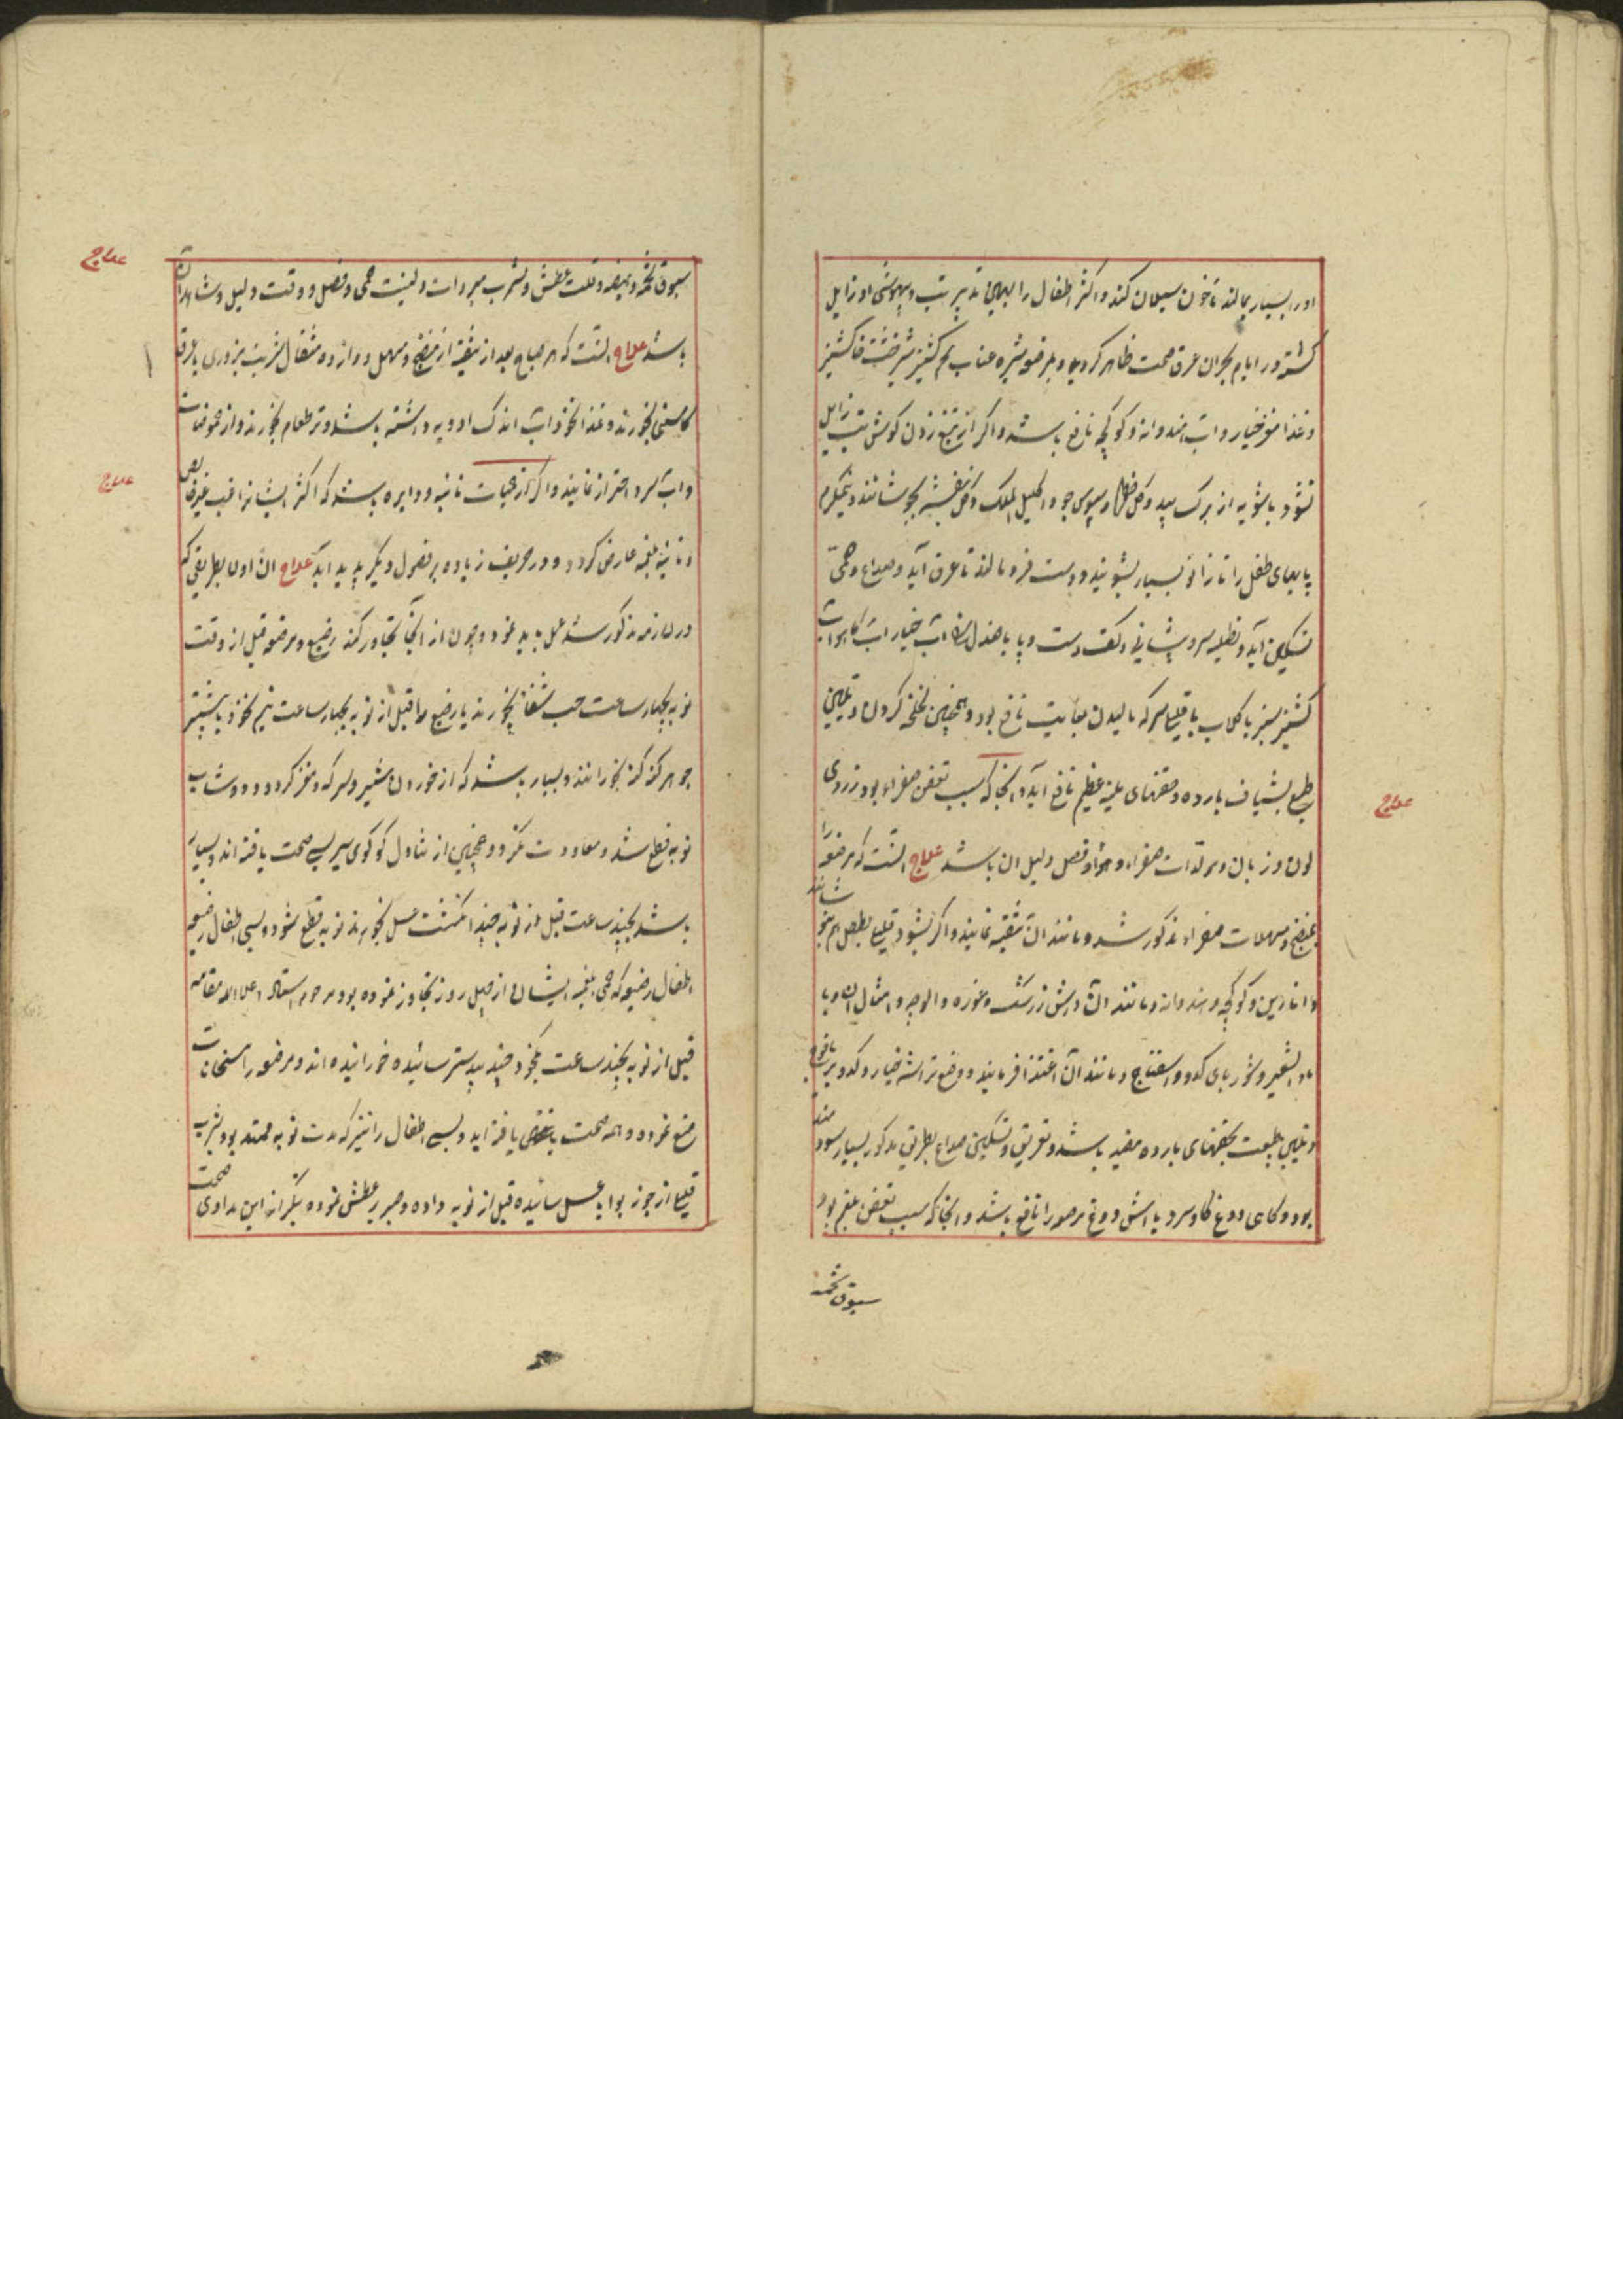 اورا بسیار بمالند تا خون سیلان کند و اکثر اطفال را بهمین تدبیر تب و بیهوشی او زایل
کشته در ایام بحران عرق صحت ظاهر کردید و مرضعه شیره عناب تخم کشنیز شیرخشت خاکشیر
و غذا مغز خیار و آب هندوانه و کوکچه نافع باشد و اکر از تیغ زدن کوش تب زایل
نشود پاشویه از برک بید و کل خطمی و سبوس جو و اکلیل الملک و کل بنفشه بجوشانند و نیمکرم
پایهای طفل را تا زانو بسیار بشویند و دست فرو مالند تا عرق آید و صداع و حمی
تسکین آید و تطلیه سر و پیشانی و کف دست و پا با صندل آب خیار آب کاهو آب
کشنیز سبز با کلاب با قلیلی سرکه مالیدن بغایت نافع بود و همچنین لخلخه کردن و تلیین
طبع بشیاف بارده و حقنهای لینه عظیم نافع آید و آنجا که سبب تعفن صفراء بود زردی
لون و زبان و مولدات صفراء و هوا و فصل دلیل آن باشد علاج آنست که مرضعه را
بمنضج و مسهلات صفراء مذکور شد و مانند آن تنقیه نمایند و اکر نشود قلیلی بطفل هم بخورانند
و انارین و کوکچه و هندوانه و مانند آن و آش زرشک و غوره و آلوچه و امثال آن و با
ماء الشعیر و شوربای کدو و اسفناج و مانند آن اغتذا فرمایند و وضع تراشه خیار و کدو بر یافوخ
و تلیین طبیعت بحقنهای بارده مفید باشد و تعریق و تسکین صداع بطریق مذکور بسیار سودمند
بود و کاهی دوغ کاو سرد یا آش دوغ مرضعه را نافع باشد و آنجا که سبب تعفن بلغم بود
سبوق تخمه
علاج
سبوق تخمه و هیضه و قلت عطش و شرب مبردات و لینت حمی و فصل و وقت دلیل و شاهد آن
باشد علاج آنست که هر صباح بعد از تنقیه از منضج و مسهل دوازده مثقال شربت بزوری با عرق
کاسنی بخورند و غذا نخود آب اندک ادویه داشته باشد و تره طعام بخورند و از حموضات
و آب سرد احتراز نمایند و اکر از حمیات نائبه و دایره باشد که اکثر ایشانرا غب غیر خالص
و نائبه بلغمیه عارض کردد و در خریف زیاده بر فصول دیکر پدید آید علاج آن اولا بطریقی که
در لازمه مذکور شد عمل باید نمود و چون از آنجا تجاوز کند رضیع و مرضعه قبل از وقت
نوبه بچهار ساعت حب شفا بخورند یا رضیع را قبل از نوبه بچهار ساعت نیم نخود یا بیشتر
جوهر کنه کنه بخورانند و بسیار باشد که از خوردن شیر و سرکه و مغز کردو و دوشاب
نوبه قطع شد و معاودت نکرد و همچنین از تناول کوکوی سیر بسی صحت یافته اند و بسیار
باشد بچند ساعت قبل از نوبه چند انکشت عسل بخورند نوبه قطع شود و بسی اطفال رضیعه
اطفال رضیعه که حمی بلغمیه ایشان از چهل روز تجاوز نموده بود مرحوم استاد اعلا الله مقامه
قبل از نوبه بچند ساعت یکنخود جند بیدستر سائیده خورانیده اند و مرضعه را مسخنات
منع نموده و همه صحت یافته اند و بسی اطفال را نیز که مدت نوبه ممتد بود بشرب
قلیلی از جوز بوا با عسل سائیده قبل از نوبه داده و صبر بر عطش نموده بتکرار این مداوی صحت
علاج
علاج